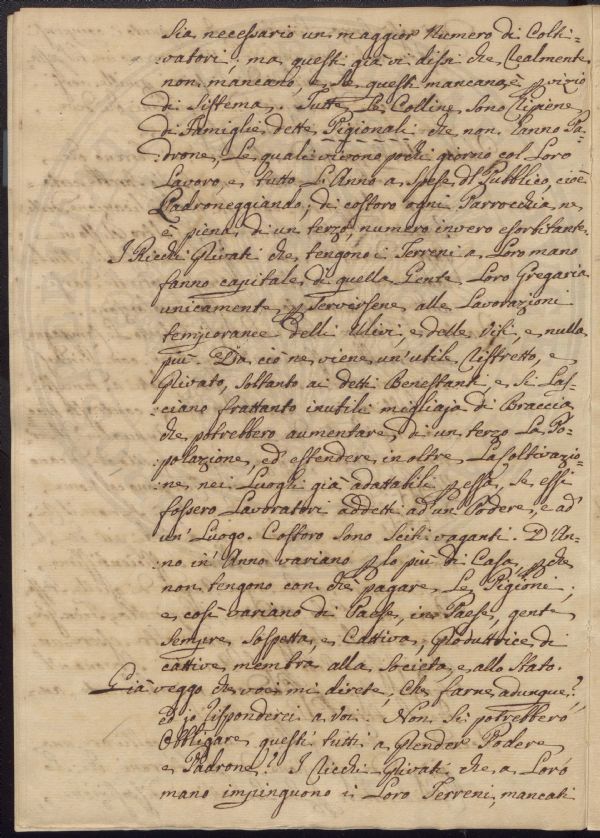 Sia necessario un maggior Numero di Colti-
:vatori; ma questi già vi dissi che realmente
non mancano, e se questi mancano è p vizio
di Sistema. Tutte le Colline sono ripiene
di Famiglie dette Pigionali che non hanno Pa-
:drone, Le quali vivono pochi giorno col Loro
Lavoro, e tutto L'Anno a spese dl Pubblico, cioè
Ladroneggiando; di costoro ogni Parrocchia ne
è piena, di un terzo, numero invero esorbitante.
I Ricchi Privati che tengono i Terreni a Loro mano
fanno capitale di quella Gente Loro Gregaria
unicamente p Servirsene alle Lavorazioni
temporanee delli Ulivi, e delle Viti, e nulla
più. Da ciò ne viene un'utile ristretto, e
Privato, soltanto ai detti Benestanti, e si Las-
:ciano frattanto inutili migliaja di Braccia
che potrebbero aumentare di un terzo La Po-
:polazione, ed estendere inoltre La Coltivazio-
:ne nei Luoghi già adattabili p essa, se essi
fossero Lavoratori addetti ad un Podere, e ad
un' Luogo. Costoro sono Sciti vaganti. D'An-
no in' Anno variano p lo più di Casa, p che
non tengono con che pagare Le Pigioni;
e così variano di Paese, in Paese, gente
sempre sospetta, e Cattiva, produttrice di
cattive membra alla Società, e allo Stato.
Già veggo che voi mi direte, Che farne adunque?
ed io risponderei a voi. Non si potrebbero
Obbligare questi tutti a prender Podere
e Padrone? I Ricchi Privati che a Loro
mano impinguono i Loro Terreni, mancati